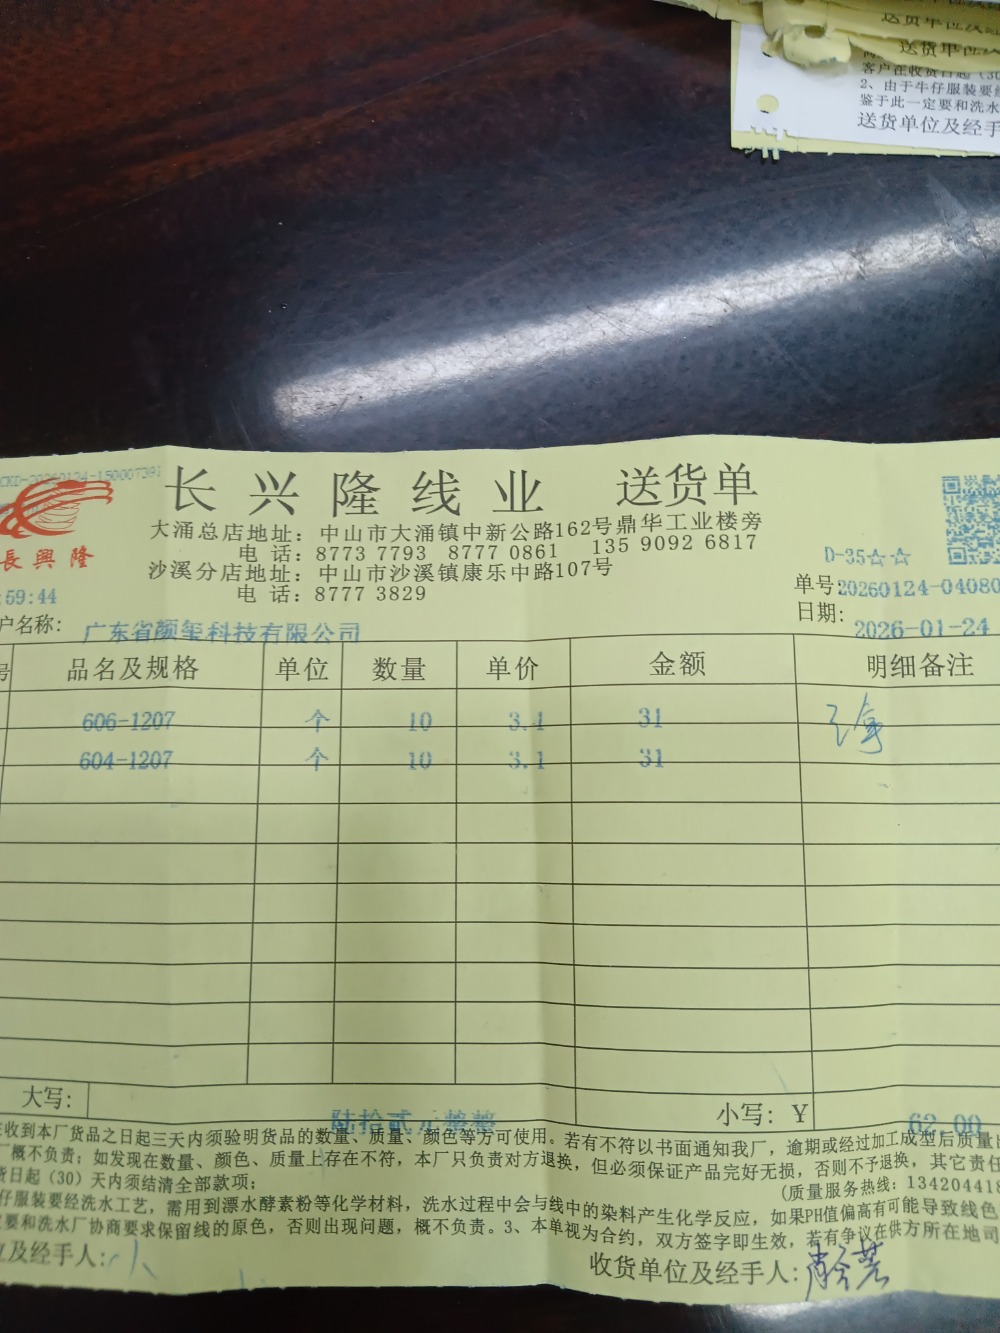 送货单位及经
送货单位及
客户在收货日起（30
2、由于牛仔服装要经
鉴于此一定要和洗水
送货单位及经手
CKD-20260124-150007391
长兴隆线业 送货单
大涌总店地址：中山市大涌镇中新公路162号鼎华工业楼旁
电 话：8773 7793 8777 0861 135 9092 6817
長興隆
沙溪分店地址：中山市沙溪镇康乐中路107号
电 话：8777 3829
D-35☆☆
:59:44
单号:20260124-04080
户名称: 广东省颜玺科技有限公司
日期: 2026-01-24
号 品名及规格 单位 数量 单价 金额 明细备注
606-1207 个 10 3.1 31
604-1207 个 10 3.1 31
大写: 陆拾贰元整整 小写: ￥ 62.00
在收到本厂货品之日起三天内须验明货品的数量、质量、颜色等方可使用。若有不符以书面通知我厂，逾期或经过加工成型后质量出
厂概不负责；如发现在数量、颜色、质量上存在不符，本厂只负责对方退换，但必须保证产品完好无损，否则不予退换，其它责任
货日起（30）天内须结清全部款项；
(质量服务热线：134204418
仔服装要经洗水工艺，需用到漂水酵素粉等化学材料，洗水过程中会与线中的染料产生化学反应，如果PH值偏高有可能导致线色
定要和洗水厂协商要求保留线的原色，否则出现问题，概不负责。3、本单视为合约，双方签字即生效，若有争议在供方所在地司
位及经手人:
收货单位及经手人: